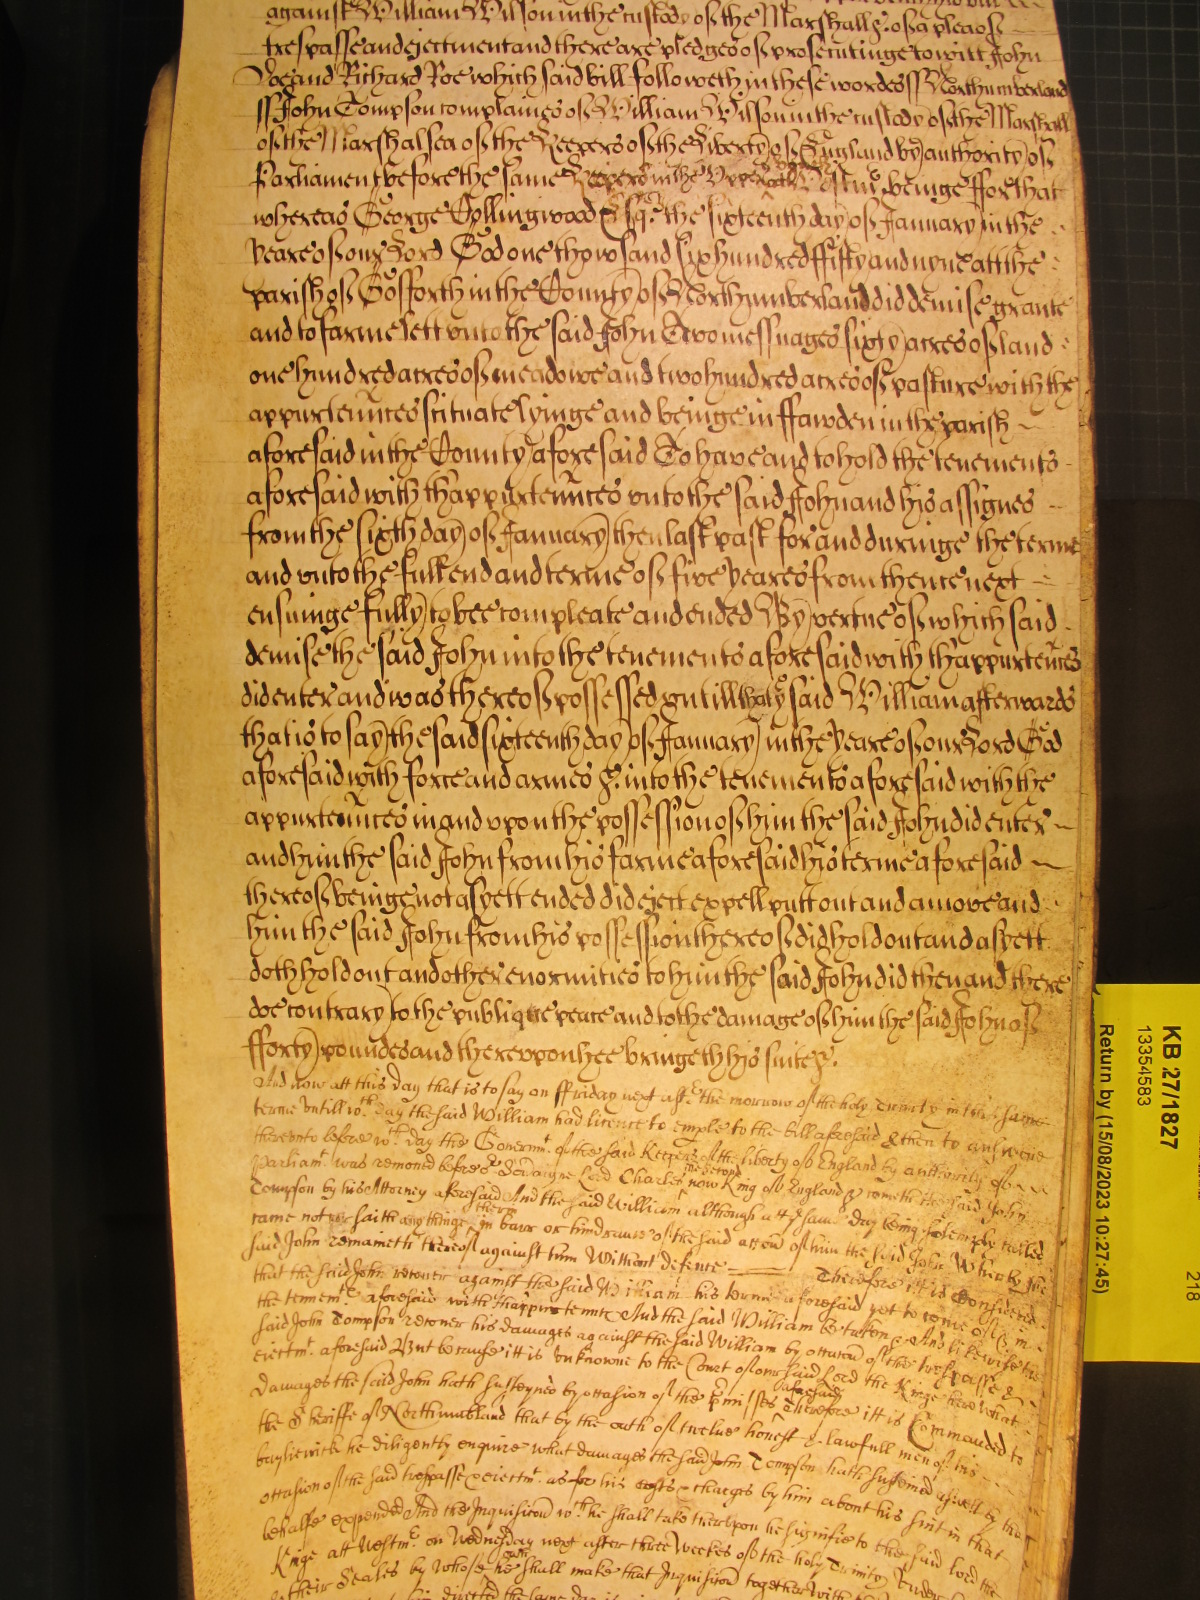 against William Wilson in the custody of the Marshall &c. of a plea of
trespasse and ejectment and there are pledges of prosecutinge to witt John
Doe and Richard Roe which said bill followeth in these wordes ss Northumberland
ss John Tompson complaines of William Wilson in the custody of the Marshall
of the Marshalsea of the Keepers of the Liberty of England by authority of
Parliament before the same Keepers in the Upper beinge ffor that
whereas George Collingwood Esqr the sixteenth day of January in the
yeare of our Lord God one thowsand six hundred ffifty and nyne att the
parish of Gosforth in the County of Northumberland did demise grante
and to farme lett unto the said John Two messuages sixty acres of land
one hundred acres of meadowe and two hundred acres of pasture with the
appurtennces scituate lyinge and beinge in ffawden in the parish
aforesaid in the County aforesaid To have and to hold the tenements
aforesaid with thappurtennces unto the said John and his assignes
from the sixth day of January then last past for and duringe the terme
and unto the full end and terme of five yeares from thence next
ensuinge fully to bee compleate and ended By vertue of which said
demise the said John into the tenements aforesaid with thappurtennces
did enter and was thereof possessed untill the said William afterwards
that is to say the said sixteenth day of January in the yeare of our Lord God
aforesaid with force and armes &c. into the tenements aforesaid with the
appurtennces in and upon the possession of him the said John did enter
and him the said John from his farme aforesaid his terme aforesaid
thereof beinge not as yett ended did eject expell putt out and amove and
him the said John from his possession thereof did hold out and as yett
doth hold out and other enormities to him the said John did then and there
doe contrary to the publique peace and to the damage of him the said John of
fforty poundes and thereupon hee bringeth his suite &c.
And now att this day that is to say on ffriday next aftr the morrow of the holy Trinity in this same
terme untill wch day the said William had licence to emple to the bill aforesaid & then to answere
thereunto before wch day the Govermt of the said Keepers of the liberty of England by authority of
Parliamt was removed before Soveraigne Lord Charles the second now King of England &c cometh the said John
Tompson by his Attorney aforesaid And the said William although att ye same day being solempnly called
came not nor saith any thinge there in barr or hindrance of the said accon of him the said John Whereby the
said John remaineth thereof against him Without defence Therefore itt is Considered
that the said John recover against the said William his terme aforesaid yet to come of & in
the tenemts aforesaid with thappurtennces And the said William be taken &c And likewise the
said John Tompson recover his damages against the said William by occasion of the trespasse &
ejectmt aforesaid But because itt is unknowne to the Court of our said Lord the Kinge here what
Damages the said John hath susteyned by occasion of the pmisses aforesaid Therefore itt is Commanded to
the Sheriffe of Northumbland that by the oath of twelve honest & lawfull men of his
bayliewick he diligently enquire what damages the said John Tompson hath susteined aswell by the
occasion of the said trespasse & ejectmt as for his costs & charges by him about his suit in that
behalfe expended And the Inquisicon wch he shall take thereupon he signifie to the said lord the
Kinge att Westmr on Wednesday next after three weekes of the holy Trinity Under
their Seales by whose oath he shall make that Inquisicon together with
the same day is
KB 27/1827
13354583
Return by (15/08/2023 10:27:45)
218